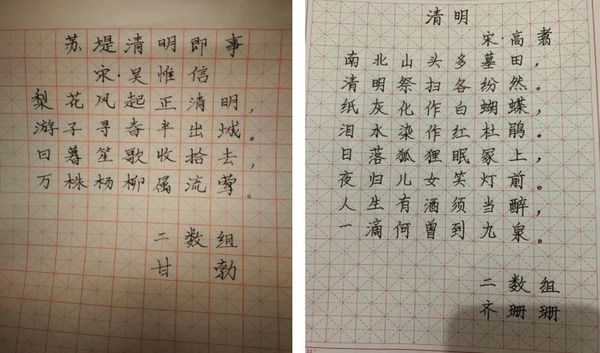 苏堤清明即事
宋·吴惟信
梨花风起正清明，
游子寻春半出城。
日暮笙歌收拾去，
万株杨柳属流莺。
二数组
甘勃
清明
宋·高翥
南北山头多墓田，
清明祭扫各纷然。
纸灰化作白蝴蝶，
泪水染作红杜鹃。
日落狐狸眠冢上，
夜归儿女笑灯前。
人生有酒须当醉，
一滴何曾到九泉。
二数组
齐珊珊